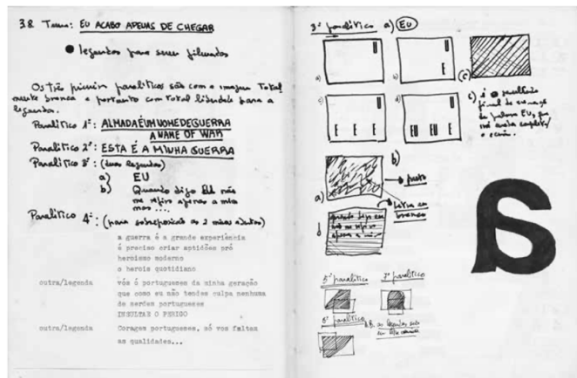 38 Tema: EU ACABO APENAS DE CHEGAR
● legendas para serem filmadas
Os três primeiros paralíticos são com a imagem total
mente branca e portanto com total liberdade para a
legendas.
Paralítico 1º: ALMADA É UM NOME DE GUERRA
A NAME OF WAR
Paralítico 2º: ESTA É A MINHA GUERRA
Paralítico 3º: (duas legendas)
a) EU
b) Quando digo Eu não
me refiro apenas a mim
mas ....
Paralítico 4º: (para sobreposição as 2 mãos )
a guerra é a grande experiência
é preciso criar aptidões pró
heroismo moderno
o herois quotidiano
outra/legenda vós ó portugueses da minha geração
que como eu não tendes culpa nenhuma
de serdes portugueses
INSULTAR O PERIGO
outra/legenda Coragem portugueses, só vos faltam
as qualidades...
3º paralítico a) EU
U
U
E
(c)
U
E E E
U
EU EU E
c) é o resultado
final do
da palavra EU, que
o écran.
b)
a) preto
b
letra em
branco
a
5º paralítico 7º paralítico
6º paralítico